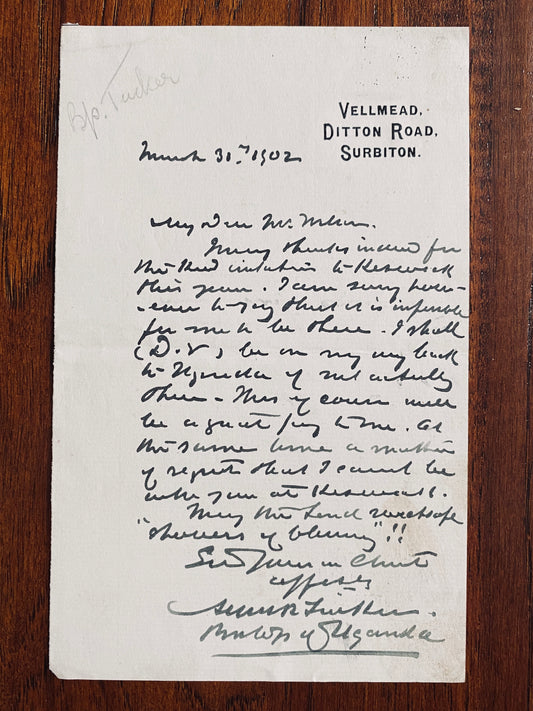 Bp. Tucker
VELLMEAD,
DITTON ROAD,
SURBITON.
March 31st 1902
My Dear Mr. Wilson.
Many thanks indeed for
the kind invitation to Keswick
this year. I am sorry how-
-ever to say that it is impossible
for me to be there. I shall
(D.V.) be on my way back
to Uganda if not actually
there - This of course will
be a great joy to me. At
the same time a matter
of regret that I cannot be
with you at Keswick.
May the Lord vouchsafe
"showers of blessing"!!
Yours in Christ
affectly
Alfred R Tucker.
Bishop of Uganda